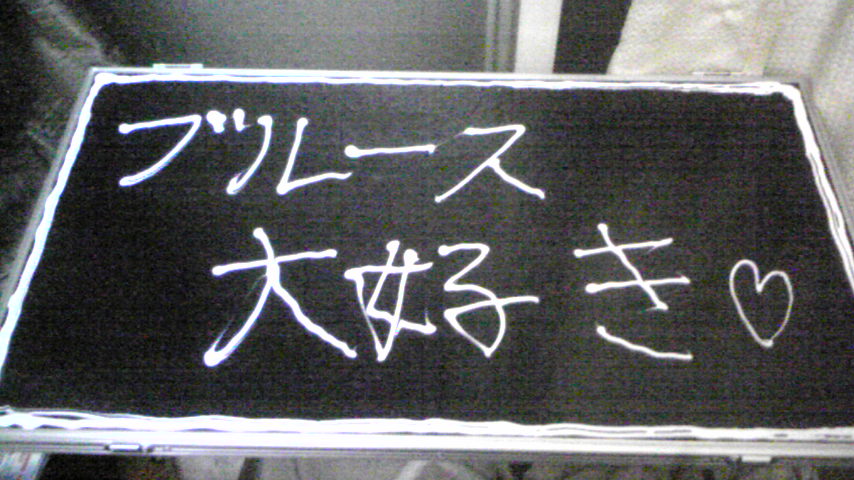 ブルース
大好き♡